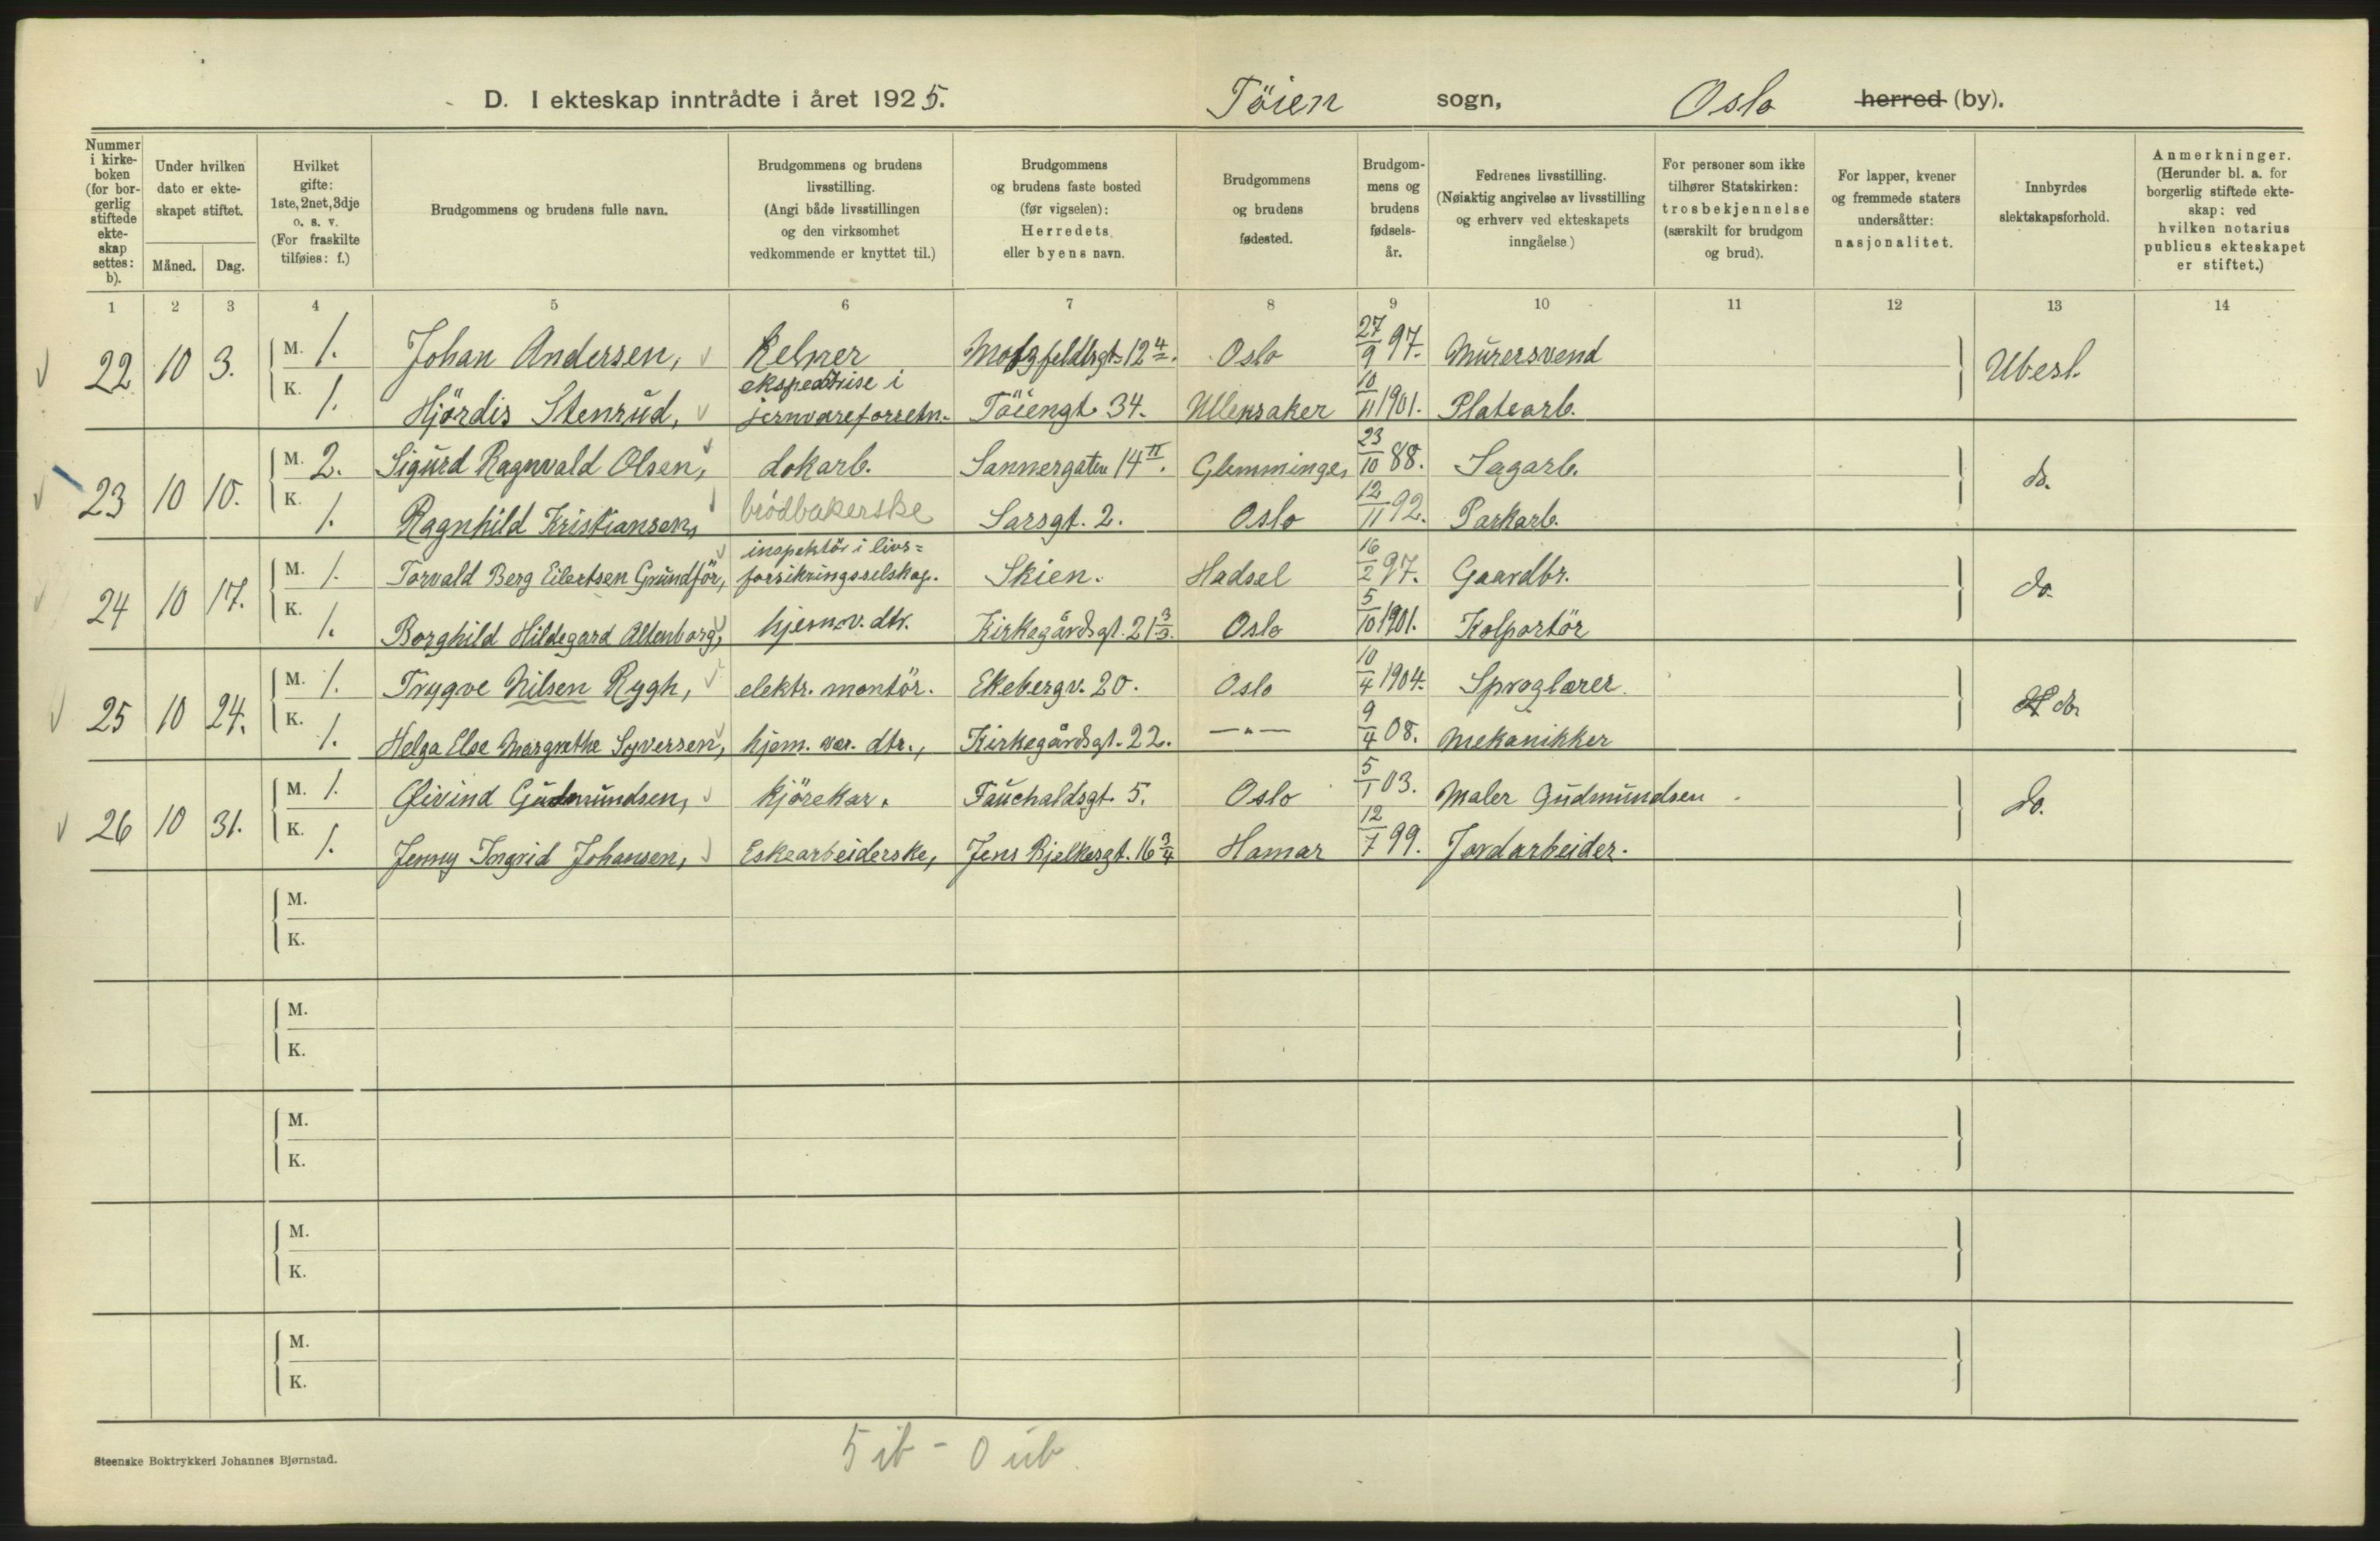 D. I ekteskap inntrådte i året 1925. Töien sogn, Oslo herred (by).
Nummer i kirkeboken (for borgerlig stiftede ekteskap settes: b).
Under hvilken dato er ekteskapet stiftet.
Måned. Dag.
Hvilket gifte: 1ste, 2net, 3dje o. s. v. (For fraskilte tilføies: f.)
Brudgommens og brudens fulle navn.
Brudgommens og brudens livsstilling. (Angi både livsstillingen og den virksomhet vedkommende er knyttet til.)
Brudgommens og brudens faste bosted (før vigselen): Herredets eller byens navn.
Brudgommens og brudens fødested.
Brudgommens og brudens fødselsår.
Fedrenes livsstilling. (Nøiaktig angivelse av livsstilling og erhverv ved ekteskapets inngåelse.)
For personer som ikke tilhører Statskirken: trosbekjennelse (særskilt for brudgom og brud).
For lapper, kvener og fremmede staters undersåtter: nasjonalitet.
Innbyrdes slektskapsforhold.
Anmerkninger. (Herunder bl. a. for borgerlig stiftede ekteskap: ved hvilken notarius publicus ekteskapet er stiftet.)
1 2 3 4 5 6 7 8 9 10 11 12 13 14
22 10 3. M. 1. Johan Andersen, Kelner Motzfeldtsgt. 12 4. Oslo 27/9 97. Murersvend Ubesl.
K. 1. Hjördis Stenrud, ekspeditrise i jernvareforretn. Töiengt. 34. Ullensaker 10/11 1901. Platearb.
23 10 10. M. 2. Sigurd Ragnvald Olsen, dokarb. Sannergaten 14 II. Glemminge, 23/10 88. Sagarb. do.
K. 1. Ragnhild Kristiansen, brödbakerske Sarsgt. 2. Oslo 12/11 92. Parkarb.
24 10 17. M. 1. Torvald Berg Eilertsen Grundför, inspektör i livs=forsikringsselskap. Skien. Hadsel 16/2 97. Gaardbr. do.
K. 1. Borghild Hildegard Altenborg, hjem. v. dtr. Kirkegårdsgt. 21 3/3. Oslo 5/10 1901. Kolportör
25 10 24. M. 1. Trygve Nilsen Rygh, elektr. montör. Ekebergv. 20. Oslo 10/4 1904. Sproglærer. do.
K. 1. Helga Else Margrethe Syversen, hjem. vær. dtr., Kirkegårdsgt. 22. —"— 9/4 08. Mekanikker
26 10 31. M. 1. Øivind Gudmundsen, kjörekar. Fauchaldsgt. 5. Oslo 5/1 03. Maler Gudmundsen do.
K. 1. Jenny Ingrid Johansen, Eskearbeiderske, Jens Bjelkesgt. 16 3/4 Hamar 12/7 99. Jordarbeider.
M.
K.
M.
K.
M.
K.
M.
K.
M.
K.
5 ib - 0 ub.
Steenske Boktrykkeri Johannes Bjørnstad.